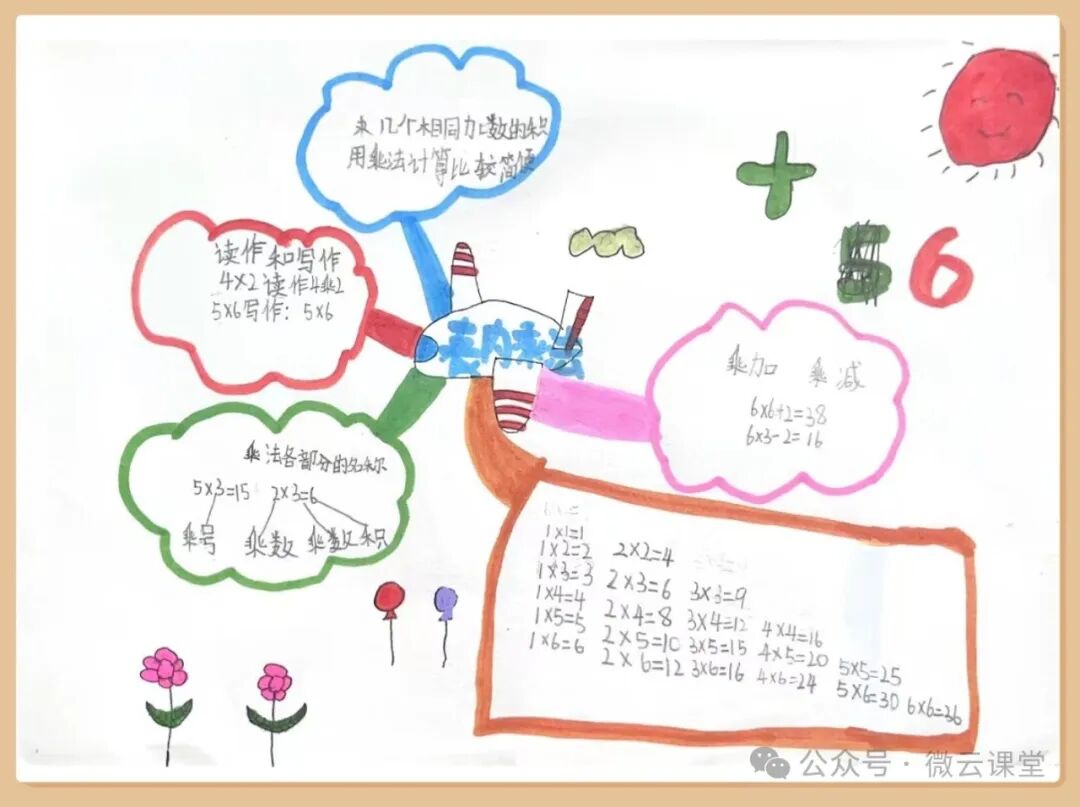 求几个相同加数的积
用乘法计算比较简便
读作和写作
4×2读作4乘2
5×6写作：5×6
表内乘法
+
5 6
乘加 乘减
6×6+2=38
6×3-2=16
乘法各部分的名称
5×3=15 2×3=6
乘号 乘数 乘数 积
1×1=1
1×2=2 2×2=4
1×3=3 2×3=6 3×3=9
1×4=4 2×4=8 3×4=12 4×4=16
1×5=5 2×5=10 3×5=15 4×5=20 5×5=25
1×6=6 2×6=12 3×6=16 4×6=24 5×6=30 6×6=36
公众号·微云课堂